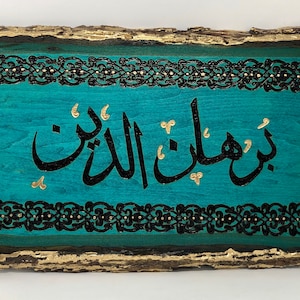 برهان الدين